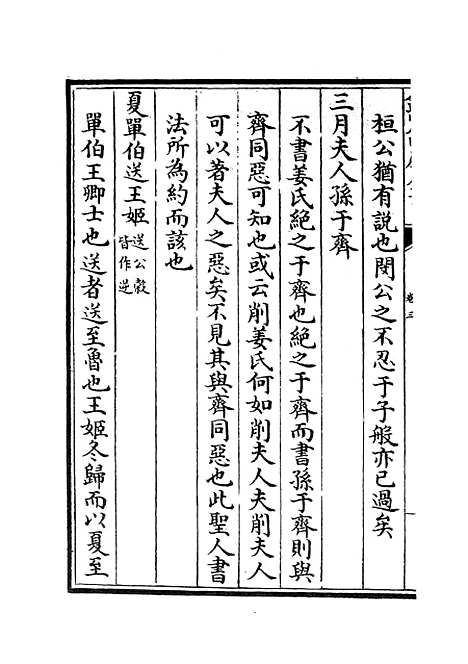 桓公猶有說也閔公之不忍于子般亦已過矣
三月夫人孫于齊
不書姜氏絶之于齊也絶之于齊而書孫于齊則與
齊同惡可知也或云削姜氏何如削夫人夫削夫人
可以著夫人之惡矣不見其與齊同惡也此聖人書
法所為約而該也
夏單伯送王姬送公穀皆作逆
單伯王卿士也送者送至魯也王姬冬歸而以夏至